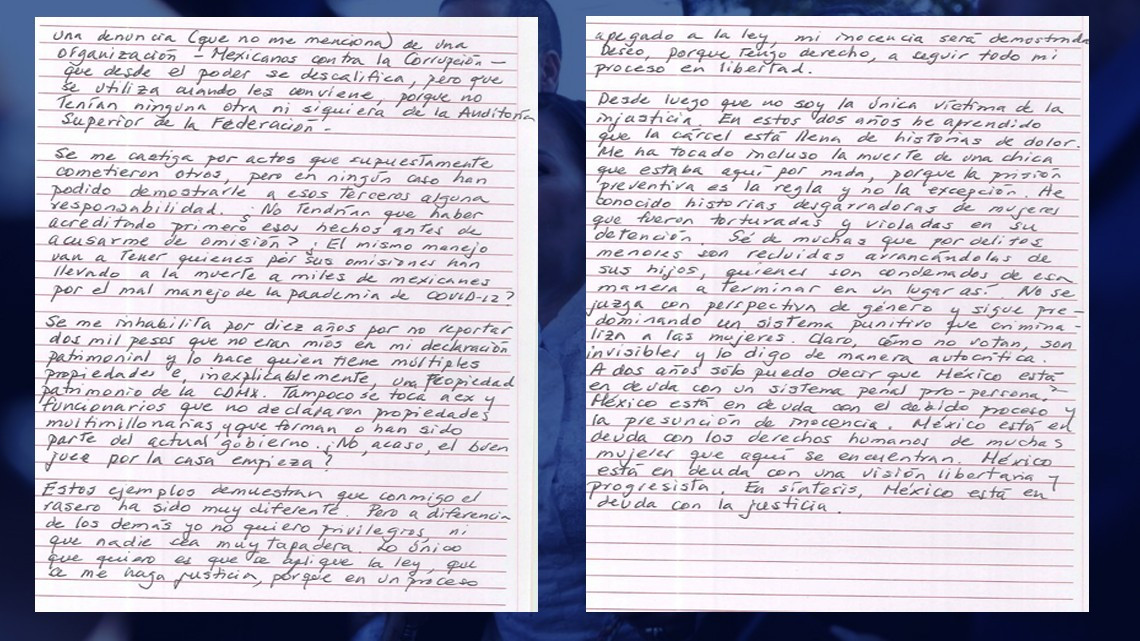 una denuncia (que no me menciona) de una
organización – Mexicanos contra la Corrupción –
que desde el poder se descalifica, pero que
se utiliza cuando les conviene, porque no
tenían ninguna otra ni siquiera de la Auditoría
Superior de la Federación.
Se me castiga por actos que supuestamente
cometieron otros, pero en ningún caso han
podido demostrarle a esos terceros alguna
responsabilidad. ¿No tendrían que haber
acreditado primero esos hechos antes de
acusarme de omisión? ¿El mismo manejo
van a tener quienes por sus omisiones han
llevado a la muerte a miles de mexicanes
por el mal manejo de la paademia de COVID-12?
Se me inhabilita por diez años por no reportar
dos mil pesos que no eran míos en mi declaración
patrimonial y lo hace quien tiene múltiples
propiedades e, inexplicablemente, una propiedad
patrimonio de la CDMX. Tampoco se toca a ex y
funcionarios que no declararon propiedades
multimillonarias, y que forman o han sido
parte del actual gobierno. ¿No, acaso, el buen
juez por la casa empieza?
Estos ejemplos demuestran que conmigo el
rasero ha sido muy diferente. Pero a diferencia
de los demás yo no quiero privilegios, ni
que nadie sea muy tapadera. Lo único
que quiero es que se aplique la ley, que
se me haga justicia, porque en un proceso
apegado a la ley, mi inocencia será demostrada
Deseo, porque tengo derecho, a seguir todo mi
proceso en libertad.
Desde luego que no soy la única víctima de la
injusticia. En estos dos años he aprendido
que la cárcel está llena de historias de dolor.
Me ha tocado incluso la muerte de una chica
que estaba aquí por nada, porque la prisión
preventiva es la regla y no la excepción. He
conocido historias desgarradoras de mujeres
que fueron torturadas y violadas en su
detención. Sé de muchas que por delitos
menores son recluidas arrancándolas de
sus hijos, quienes son condenados de esa
manera a terminar en un lugar así. No se
juzga con perspectiva de género y sigue pre–
dominando un sistema punitivo que crimina–
liza a las mujeres. Claro, cómo no votan, son
invisibles y lo digo de manera autocrítica.
A dos años sólo puedo decir que México está
en deuda con un sistema penal pro-persona,
México está en deuda con el debido proceso y
la presunción de inocencia. México está en
deuda con los derechos humanos de muchas
mujeres que aquí se encuentran. México
está en deuda con una visión libertaria y
progresista. En síntesis, México está en
deuda con la justicia.